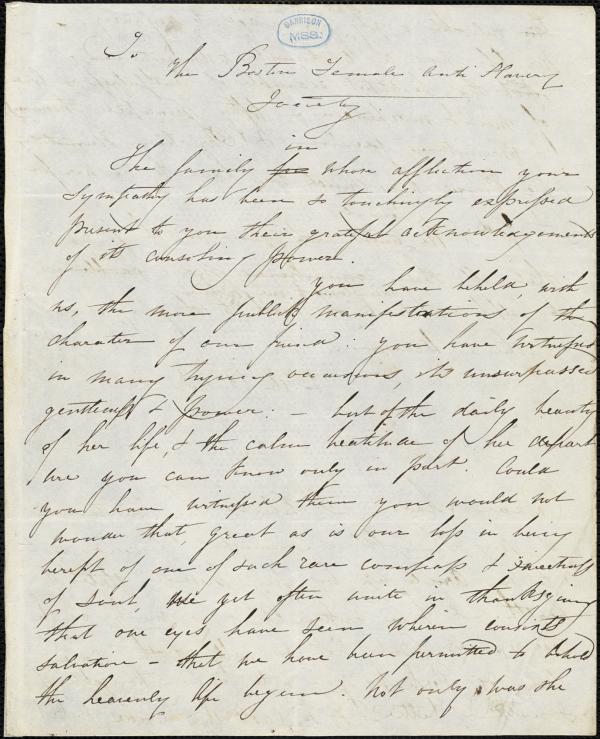 GARRISON
MSS.
To
The Boston Female Anti Slavery
Society.
in
The family for whose affliction your
sympathy has been so touchingly expressed
present to you their grateful acknowledgements
of its consoling power.
You have beheld, with
us, the more public manifestations of the
character of our friend: you have witnessed
in many trying occasions, its unsurpassed
gentleness & power: - but of the daily beauty
of her life, & the calm beatitude of her depart
ure you can know only in part. Could
you have witnessed them you would not
wonder that, great as is our loss in being
bereft of one of such rare compass & sweetness
of soul, we yet often unite in thanksgiving
that our eyes have seen wherein consists
salvation - that we have been permitted to behold
the heavenly life begun. Not only was she